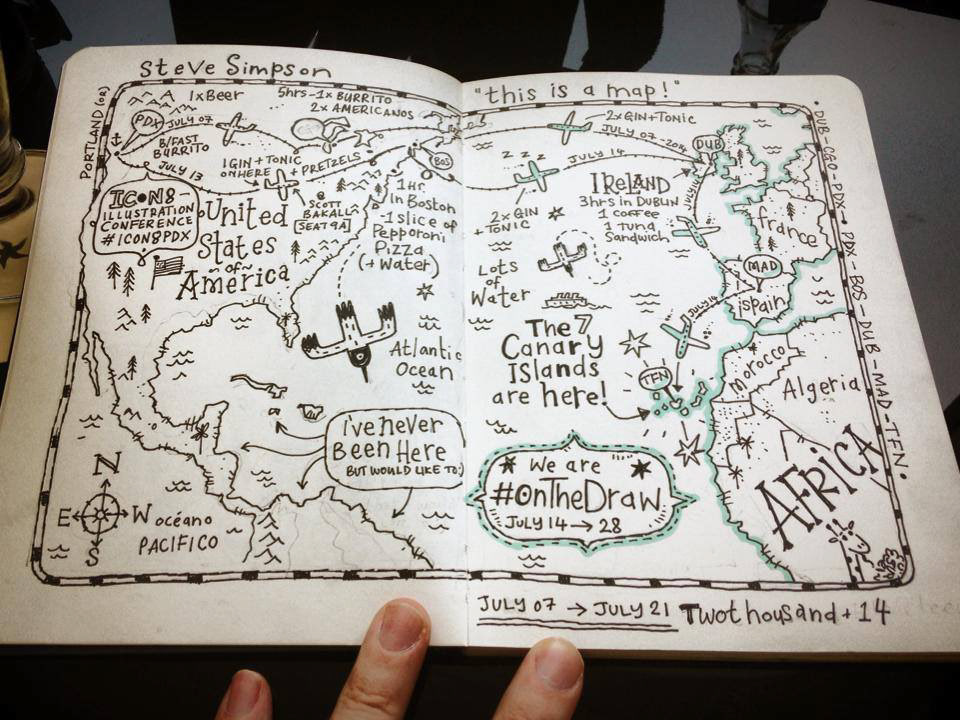 Steve Simpson
"this is a map!"
PORTLAND (OR)
1xBeer
5hrs-1x BURRITO
2x AMERICANOS
PDX
JULY 07
B/FAST
BURRITO
JULY 13
1 GIN + TONIC
ON HERE
+ PRETZELS
SCOTT
BAKALL
[SEAT 9A]
BOS
ICON8
ILLUSTRATION
CONFERENCE
#ICON8PDX
United
States
of
America
1 Hr.
In Boston
-1 slice of
Pepperoni
Pizza
(+ Water)
Atlantic
Ocean
I've never
Been Here
BUT WOULD LIKE TO:)
N
E
W
S
océano
PACIFICO
2x GIN + TONIC
JULY 07
DUB
Z Z Z
JULY 14
2x GIN
+ TONIC
IRELAND
3hrs in DUBLIN
1 coffee
1 tuna
Sandwich
JULY 14
france
MAD
Spain
JULY 14
Lots
of
Water
The 7
Canary
ISlands
are here!
TFN
Morocco
Algeria
AFRICA
We are
#OnTheDraw
JULY 14 → 28
DUB-CGO-PDX - PDX-BOS-DUB-MAD-TFN.
JULY 07 → JULY 21 Twothousand + 14